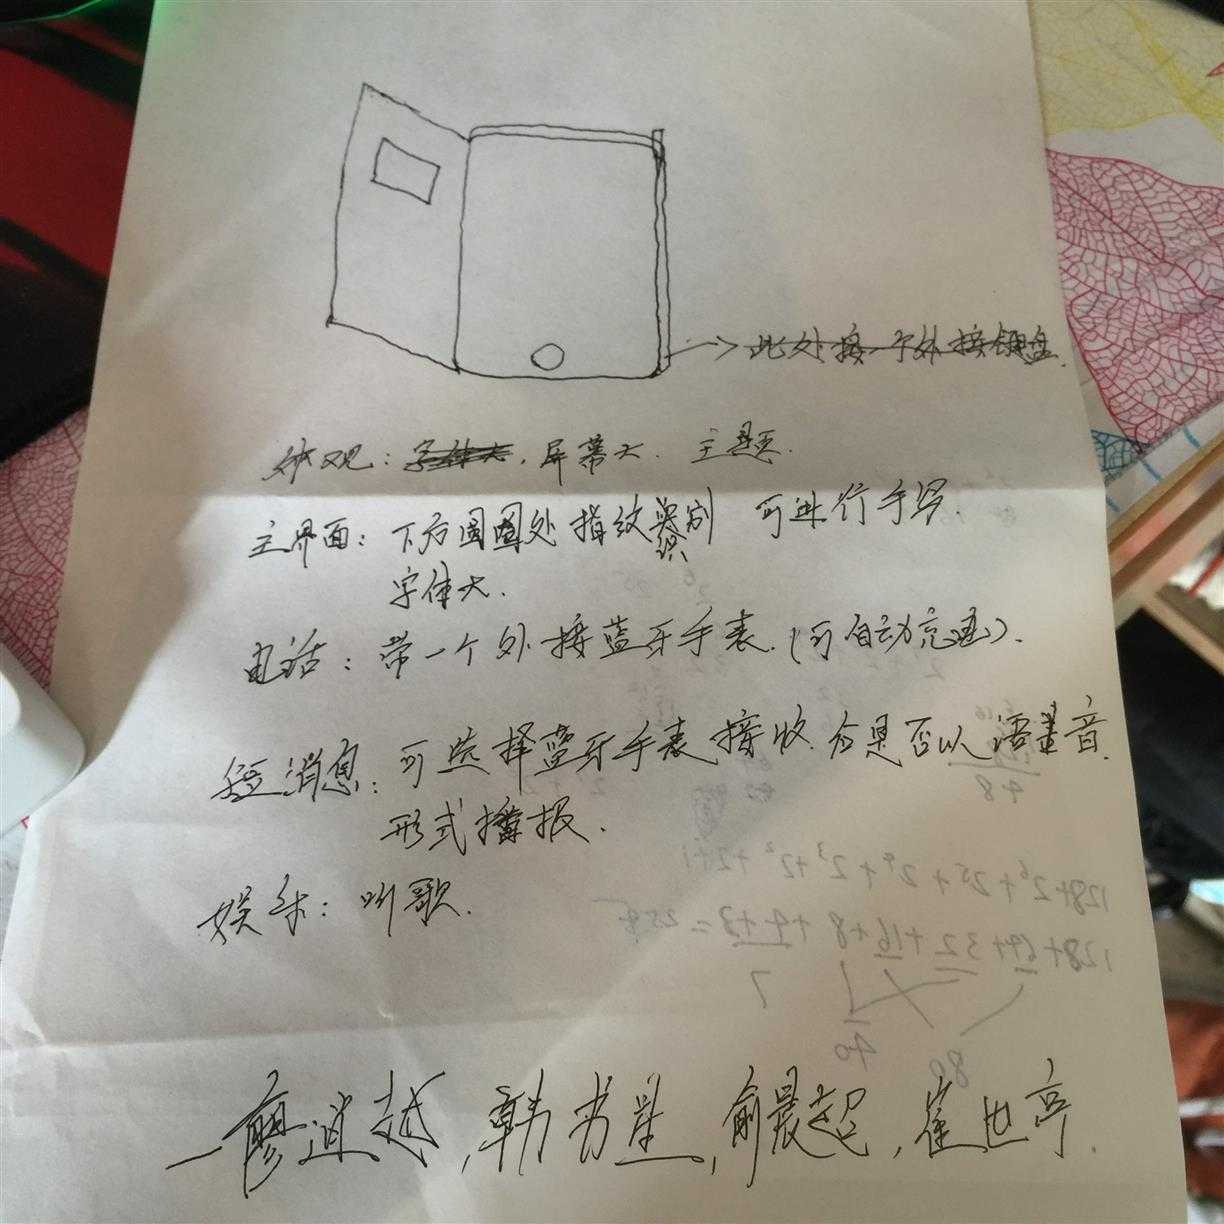 此处接一个外接键盘.
外观: 字体大, 屏幕大. 主题.
主界面: 下方圆圈处指纹识别 可进行手写.
字体大.
电话: 带一个外接蓝牙手表.(可自动充电).
短消息: 可选择蓝牙手表接收. 及是否以语音
形式播报.
娱乐: 听歌.
128+2⁶+2⁵+2⁴+2³+2²+2+1
128+64+32+16+8+4+3=255
7
40
80
48
韩书 俞晨起, 崔世亮.